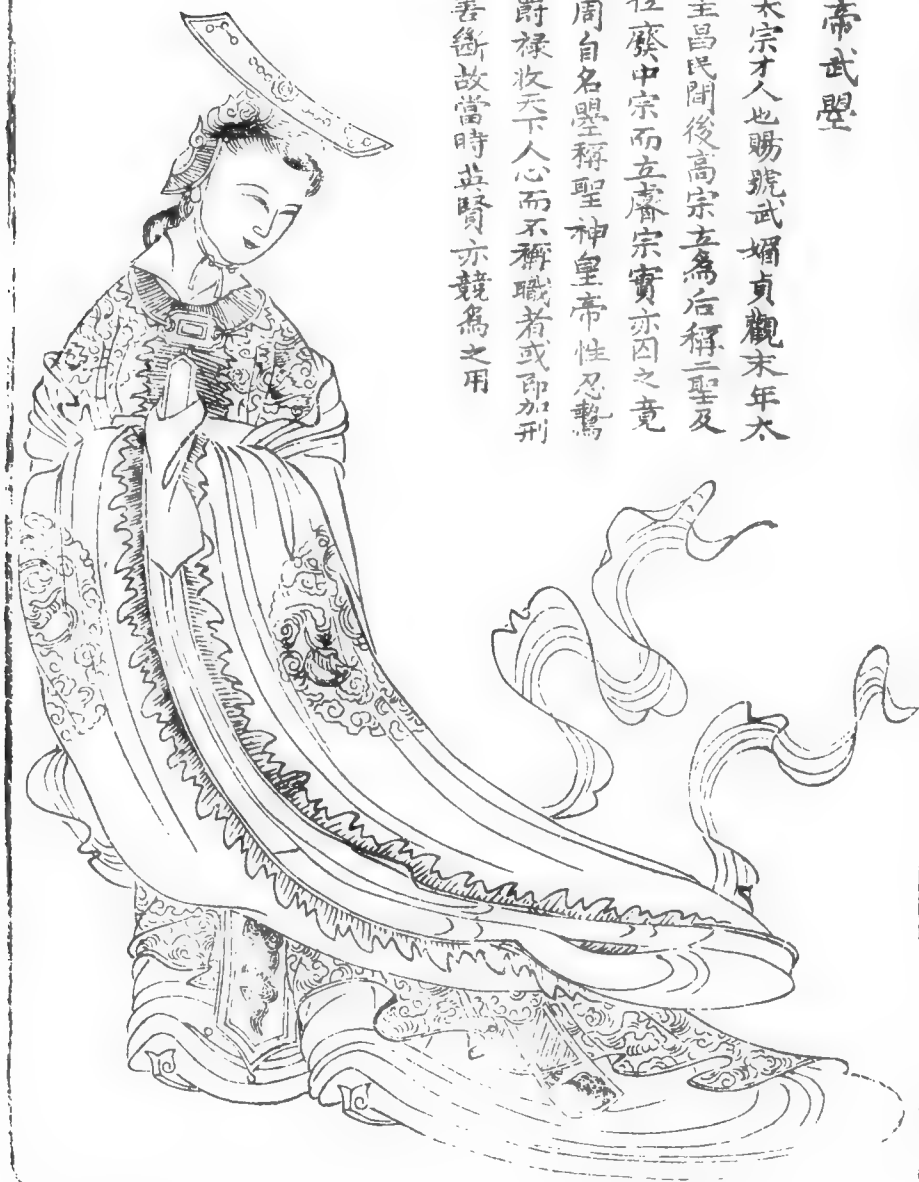 帝武曌
太宗才人也賜號武媚貞觀末年太
主昌民間後高宗立爲后稱二聖及
位廢中宗而立睿宗實亦囚之竟
周自名曌稱聖神皇帝性忍鷙
爵祿收天下人心而不稱職者或即加刑
善斷故當時英賢亦競爲之用